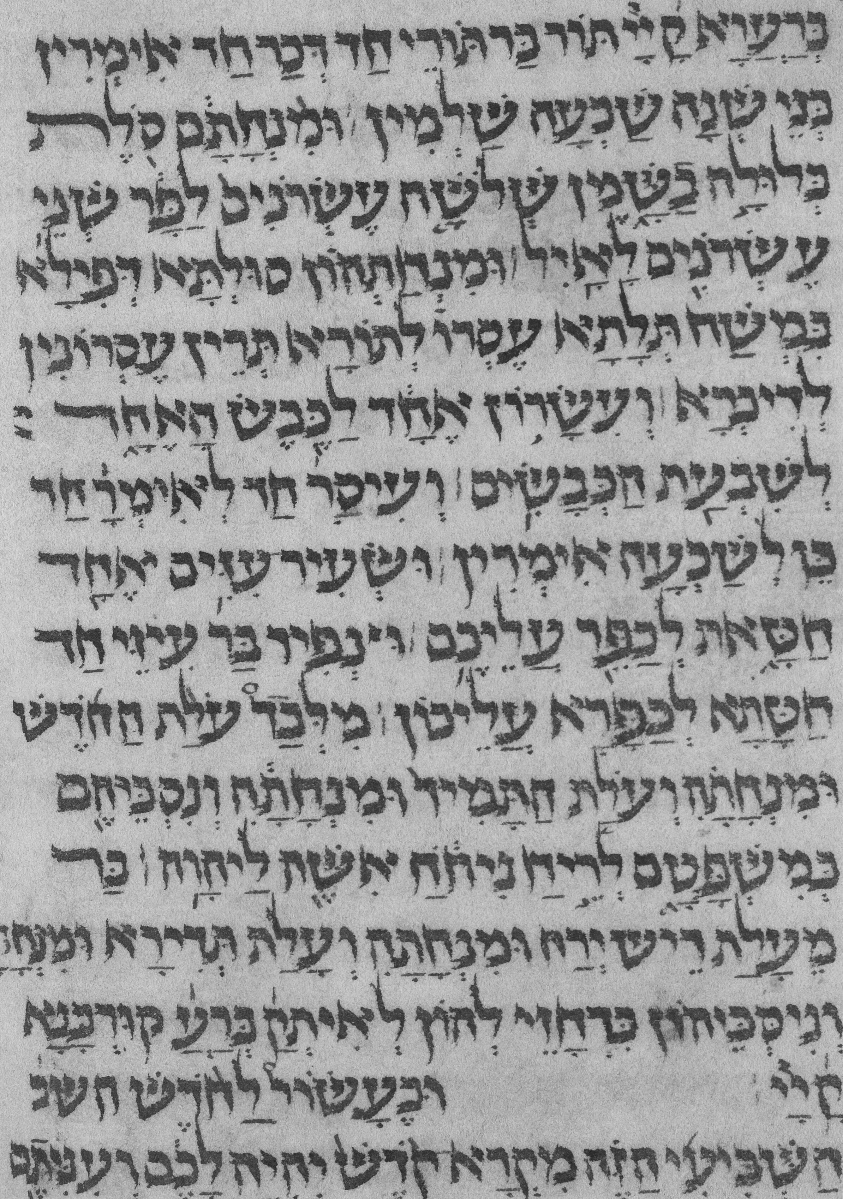 בְּרַעֲוָא קֳ יְיָ תּוֹר בַּר תּוֹרֵי חַד דְּכַר חַד אִימְּרִין
בְּנֵי שָׁנָה שִׁבְעָה שַׁלְמִין וּמִנְחָתָם סֹלֶת
בְּלוּלָה בַשָּׁמֶן שְׁלֹשָׁה עֶשְׂרֹנִים לַפָּר שְׁנֵי
עֶשְׂרֹנִים לָאָיִל וּמִנְחָתְהוֹן סוּלְתָּא דְּפִילָא
בִּמְשַׁח תְּלָתָא עֶסְרוֹ לְתוֹרָא תְּרֵין עֶסְרוֹנִין
לְדִיכְרָא וְעִשָּׂרוֹן אֶחָד לַכֶּבֶשׂ הָאֶחָד
לְשִׁבְעַת הַכְּבָשִׂים וְעִיסָר חַד לְאִימְּרָ חַד
כֵּן לְשִׁבְעָה אִימְּרִין וּשְׂעִיר עִזִּים אֶחָד
חַטָּאת לְכַפֵּר עֲלֵיכֶם וּצְפִיר בַּר עִיזֵּי חַד
חַטָּתָא לְכַפָּרָא עֲלֵיכוֹן מִלְּבַד עֹלַת הַחֹדֶשׁ
וּמִנְחָתָהּ וְעֹלַת הַתָּמִיד וּמִנְחָתָהּ וְנִסְכֵּיהֶם
כְּמִשְׁפָּטָם לְרֵיחַ נִיחֹחַ אִשֶּׁה לַיהוָה בַּר
מֵעֲלַת רֵישׁ יַרְחָ וּמִנְחָתַהּ וַעֲלַת תְּדִירָא וּמִנְחָתַ
וְנִיסְכֵּיהוֹן כִּדְחָזֵי לְהוֹן לְאִיתְקַ בְּרַעֲ קוּרְבָּנָא
קֳ יְיָ וּבֶעָשׂוֹר לַחֹדֶשׁ הַשְּׁבִ
הַשְּׁבִיעִי הַזֶּה מִקְרָא קֹדֶשׁ יִהְיֶה לָכֶם וְעִנִּיתֶם